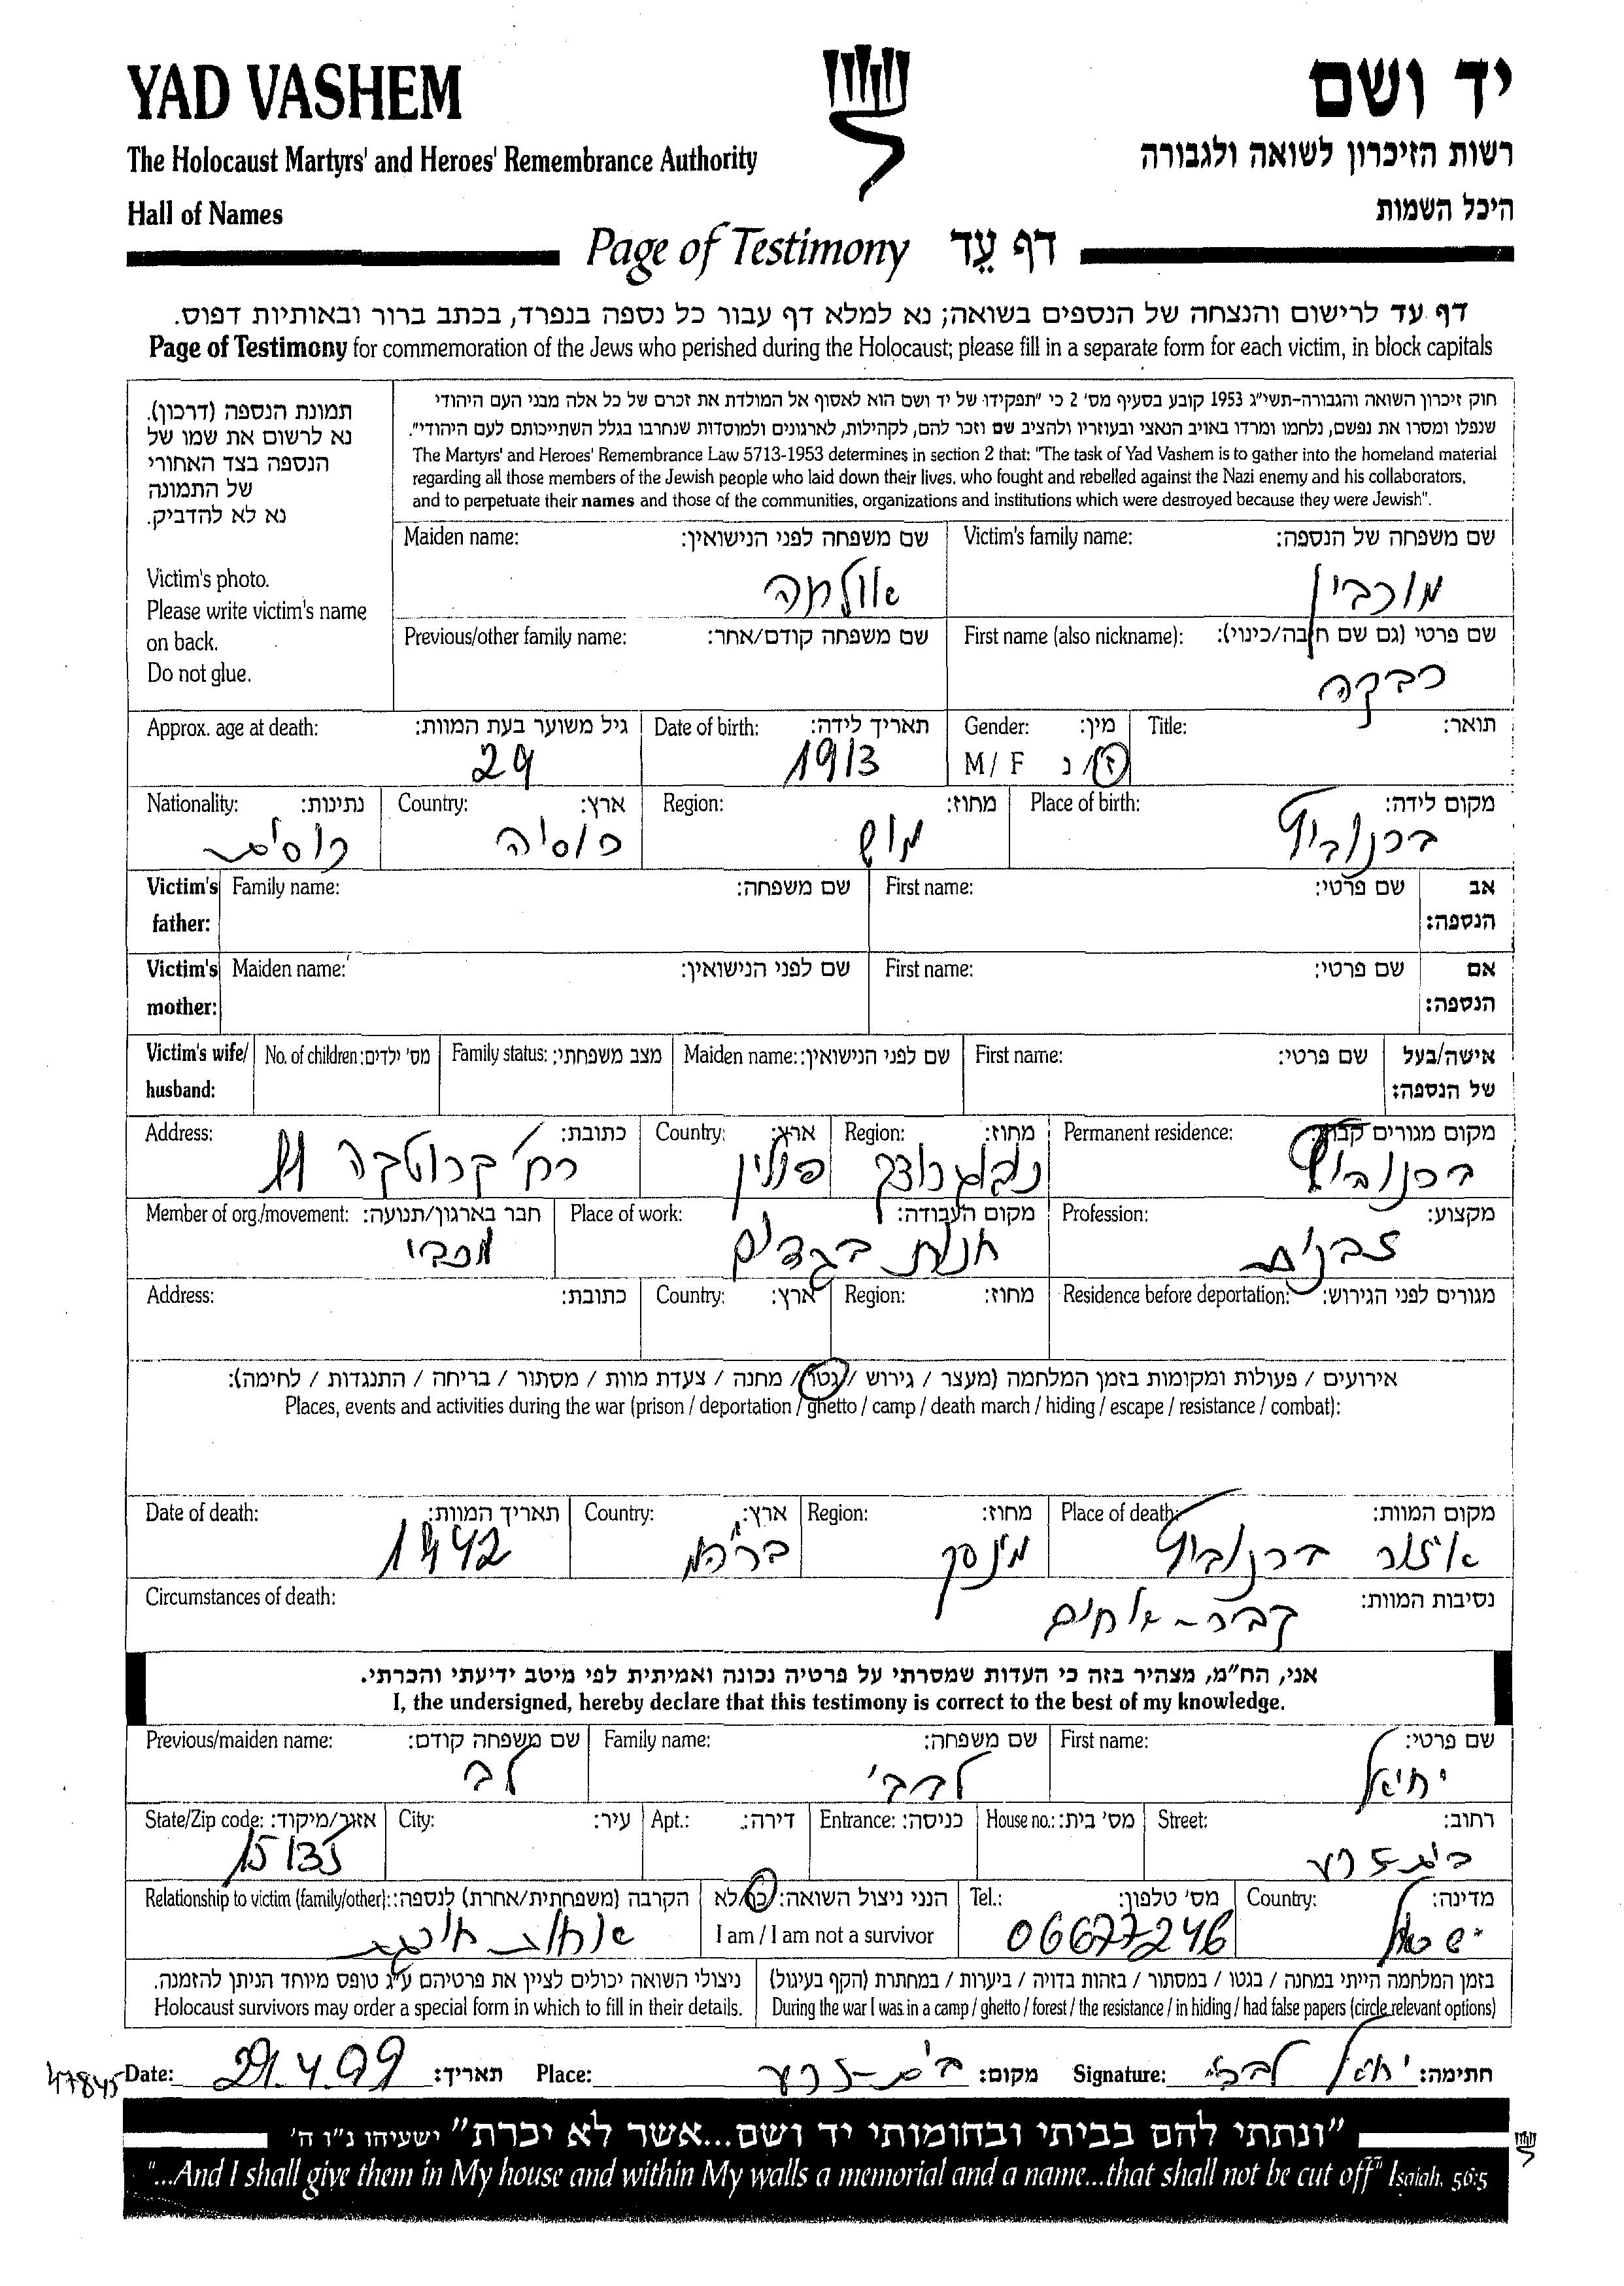 YAD VASHEM
יד ושם
The Holocaust Martyrs' and Heroes' Remembrance Authority
רשות הזיכרון לשואה ולגבורה
Hall of Names
היכל השמות
Page of Testimony דף עֵד
דף עד לרישום והנצחה של הנספים בשואה; נא למלא דף עבור כל נספה בנפרד, בכתב ברור ובאותיות דפוס.
Page of Testimony for commemoration of the Jews who perished during the Holocaust; please fill in a separate form for each victim, in block capitals
תמונת הנספה (דרכון).
נא לרשום את שמו של
הנספה בצד האחורי
של התמונה
נא לא להדביק.
Victim's photo.
Please write victim's name
on back.
Do not glue.
חוק זיכרון השואה והגבורה-תשי"ג 1953 קובע בסעיף מס' 2 כי "תפקידו של יד ושם הוא לאסוף אל המולדת את זכרם של כל אלה מבני העם היהודי
שנפלו ומסרו את נפשם, נלחמו ומרדו באויב הנאצי ובעוזריו ולהציב שם וזכר להם, לקהילות, לארגונים ולמוסדות שנחרבו בגלל השתייכותם לעם היהודי".
The Martyrs' and Heroes' Remembrance Law 5713-1953 determines in section 2 that: "The task of Yad Vashem is to gather into the homeland material
regarding all those members of the Jewish people who laid down their lives, who fought and rebelled against the Nazi enemy and his collaborators,
and to perpetuate their names and those of the communities, organizations and institutions which were destroyed because they were Jewish".
Maiden name: שם משפחה לפני הנישואין: Victim's family name: שם משפחה של הנספה:
מוכבין
Previous/other family name: שם משפחה קודם/אחר: First name (also nickname): שם פרטי (גם שם חיבה/כינוי):
רבקה
Approx. age at death: גיל משוער בעת המוות: Date of birth: תאריך לידה: Gender: מין: Title: תואר:
29 1913 M / F ז / נ
Nationality: נתינות: Country: ארץ: Region: מחוז: Place of birth: מקום לידה:
רוסית רוסיה ברנוביץ
Victim's father: Family name: שם משפחה: First name: שם פרטי: אב הנספה:
Victim's mother: Maiden name: שם לפני הנישואין: First name: שם פרטי: אם הנספה:
Victim's wife/ husband: No. of children: מס' ילדים: Family status: מצב משפחתי: Maiden name: שם לפני הנישואין: First name: שם פרטי: אישה/בעל של הנספה:
Address: כתובת: Country: ארץ: Region: מחוז: Permanent residence: מקום מגורים קבוע:
רח' קרוטקה פולין נבוגרודק ברנוביץ
Member of org./movement: חבר בארגון/תנועה: Place of work: מקום העבודה: Profession: מקצוע:
מכבי חנות בגדים זבנית
Address: כתובת: Country: ארץ: Region: מחוז: Residence before deportation: מגורים לפני הגירוש:
אירועים / פעולות ומקומות בזמן המלחמה (מעצר / גירוש / גטו / מחנה / צעדת מוות / מסתור / בריחה / התנגדות / לחימה):
Places, events and activities during the war (prison / deportation / ghetto / camp / death march / hiding / escape / resistance / combat):
Date of death: תאריך המוות: Country: ארץ: Region: מחוז: Place of death: מקום המוות:
1942 בריהמ מינסק איזור ברנוביץ
Circumstances of death: נסיבות המוות:
קבר-אחים
אני, הח"מ, מצהיר בזה כי העדות שמסרתי על פרטיה נכונה ואמיתית לפי מיטב ידיעתי והכרתי.
I, the undersigned, hereby declare that this testimony is correct to the best of my knowledge.
Previous/maiden name: שם משפחה קודם: Family name: שם משפחה: First name: שם פרטי:
לב לבבי יחיאל
State/Zip code: אזור/מיקוד: City: עיר: Apt.: דירה: Entrance: כניסה: House no.: מס' בית: Street: רחוב:
15135 בית-זרע
Relationship to victim (family/other): הקרבה (משפחתית/אחרת) לנספה: הנני ניצול השואה: כן/לא Tel.: מס' טלפון: Country: מדינה:
I am / I am not a survivor
06677246 ישראל
ניצולי השואה יכולים לציין את פרטיהם ע"ג טופס מיוחד הניתן להזמנה. בזמן המלחמה הייתי במחנה / בגטו / במסתור / בזהות בדויה / ביערות / במחתרת (הקף בעיגול)
Holocaust survivors may order a special form in which to fill in their details. During the war I was in a camp / ghetto / forest / the resistance / in hiding / had false papers (circle relevant options)
47845 Date: 29.4.99 תאריך: Place: בית-זרע מקום: Signature: יחיאל לבבי חתימה:
"ונתתי להם בביתי ובחומותי יד ושם...אשר לא יכרת" ישעיהו נ"ו ה'
"...And I shall give them in My house and within My walls a memorial and a name...that shall not be cut off" Isaiah, 56:5